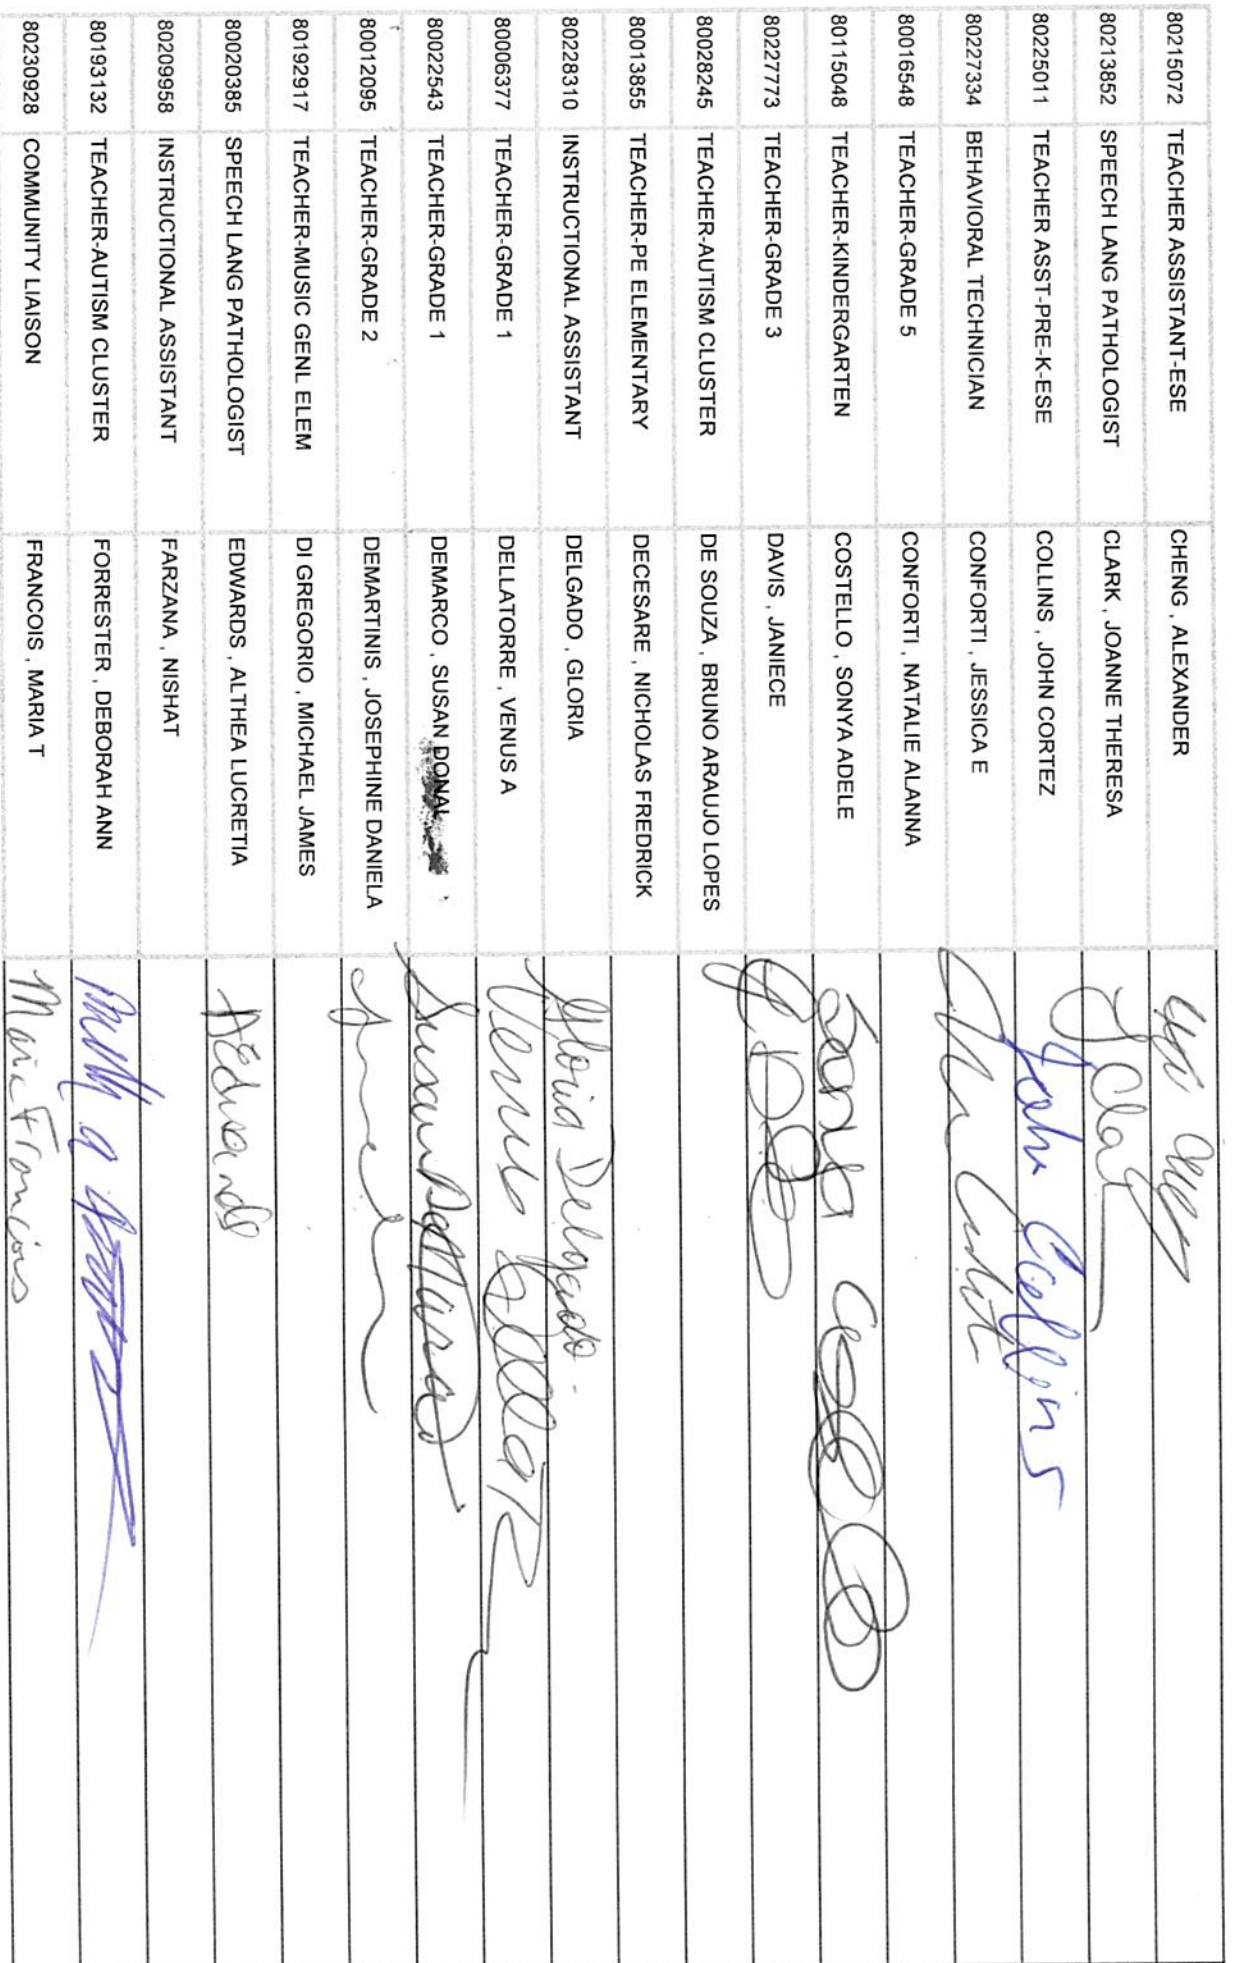 80215072 TEACHER ASSISTANT-ESE CHENG , ALEXANDER
80213852 SPEECH LANG PATHOLOGIST CLARK , JOANNE THERESA J Clark
80225011 TEACHER ASST-PRE-K-ESE COLLINS , JOHN CORTEZ John Collins
80227334 BEHAVIORAL TECHNICIAN CONFORTI , JESSICA E
80016548 TEACHER-GRADE 5 CONFORTI , NATALIE ALANNA
80115048 TEACHER-KINDERGARTEN COSTELLO , SONYA ADELE Sonya
80227773 TEACHER-GRADE 3 DAVIS , JANIECE
80028245 TEACHER-AUTISM CLUSTER DE SOUZA , BRUNO ARAUJO LOPES
80013855 TEACHER-PE ELEMENTARY DECESARE , NICHOLAS FREDRICK
80228310 INSTRUCTIONAL ASSISTANT DELGADO , GLORIA Gloria Delgado
80006377 TEACHER-GRADE 1 DELLATORRE , VENUS A Venus
80022543 TEACHER-GRADE 1 DEMARCO , SUSAN DONAL Susan DeMarco
80012095 TEACHER-GRADE 2 DEMARTINIS , JOSEPHINE DANIELA
80192917 TEACHER-MUSIC GENL ELEM DI GREGORIO , MICHAEL JAMES
80020385 SPEECH LANG PATHOLOGIST EDWARDS , ALTHEA LUCRETIA AEdwards
80209958 INSTRUCTIONAL ASSISTANT FARZANA , NISHAT
80193132 TEACHER-AUTISM CLUSTER FORRESTER , DEBORAH ANN
80230928 COMMUNITY LIAISON FRANCOIS , MARIA T Maria Francois